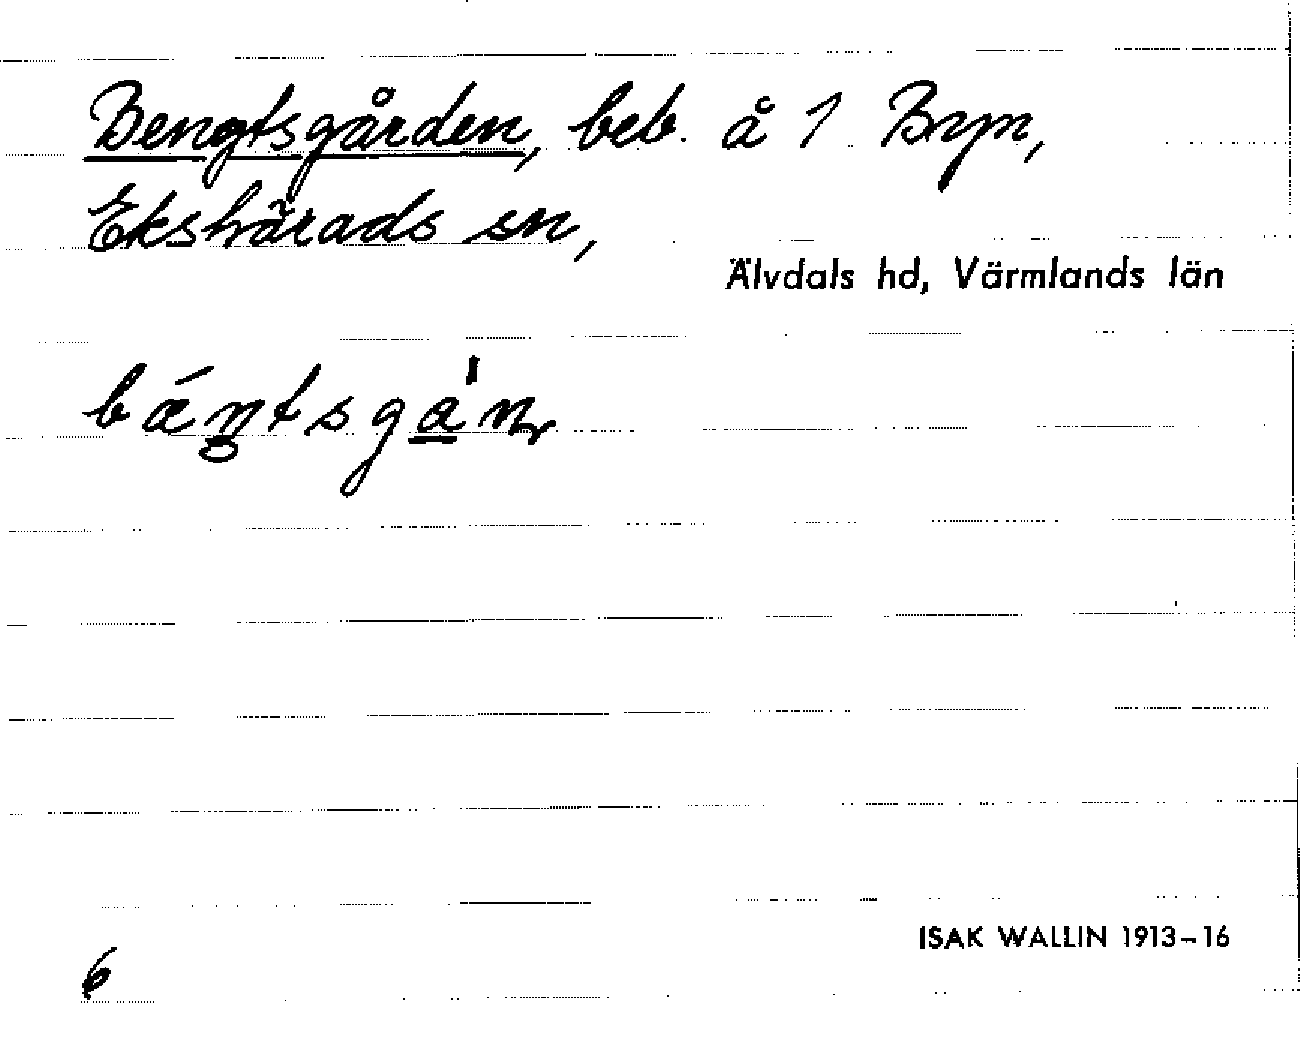 Bengtsgården, beb. å 1 Byn,
Ekshärads sn,
Älvdals hd, Värmlands län
ISAK WALLIN 1913–16
6